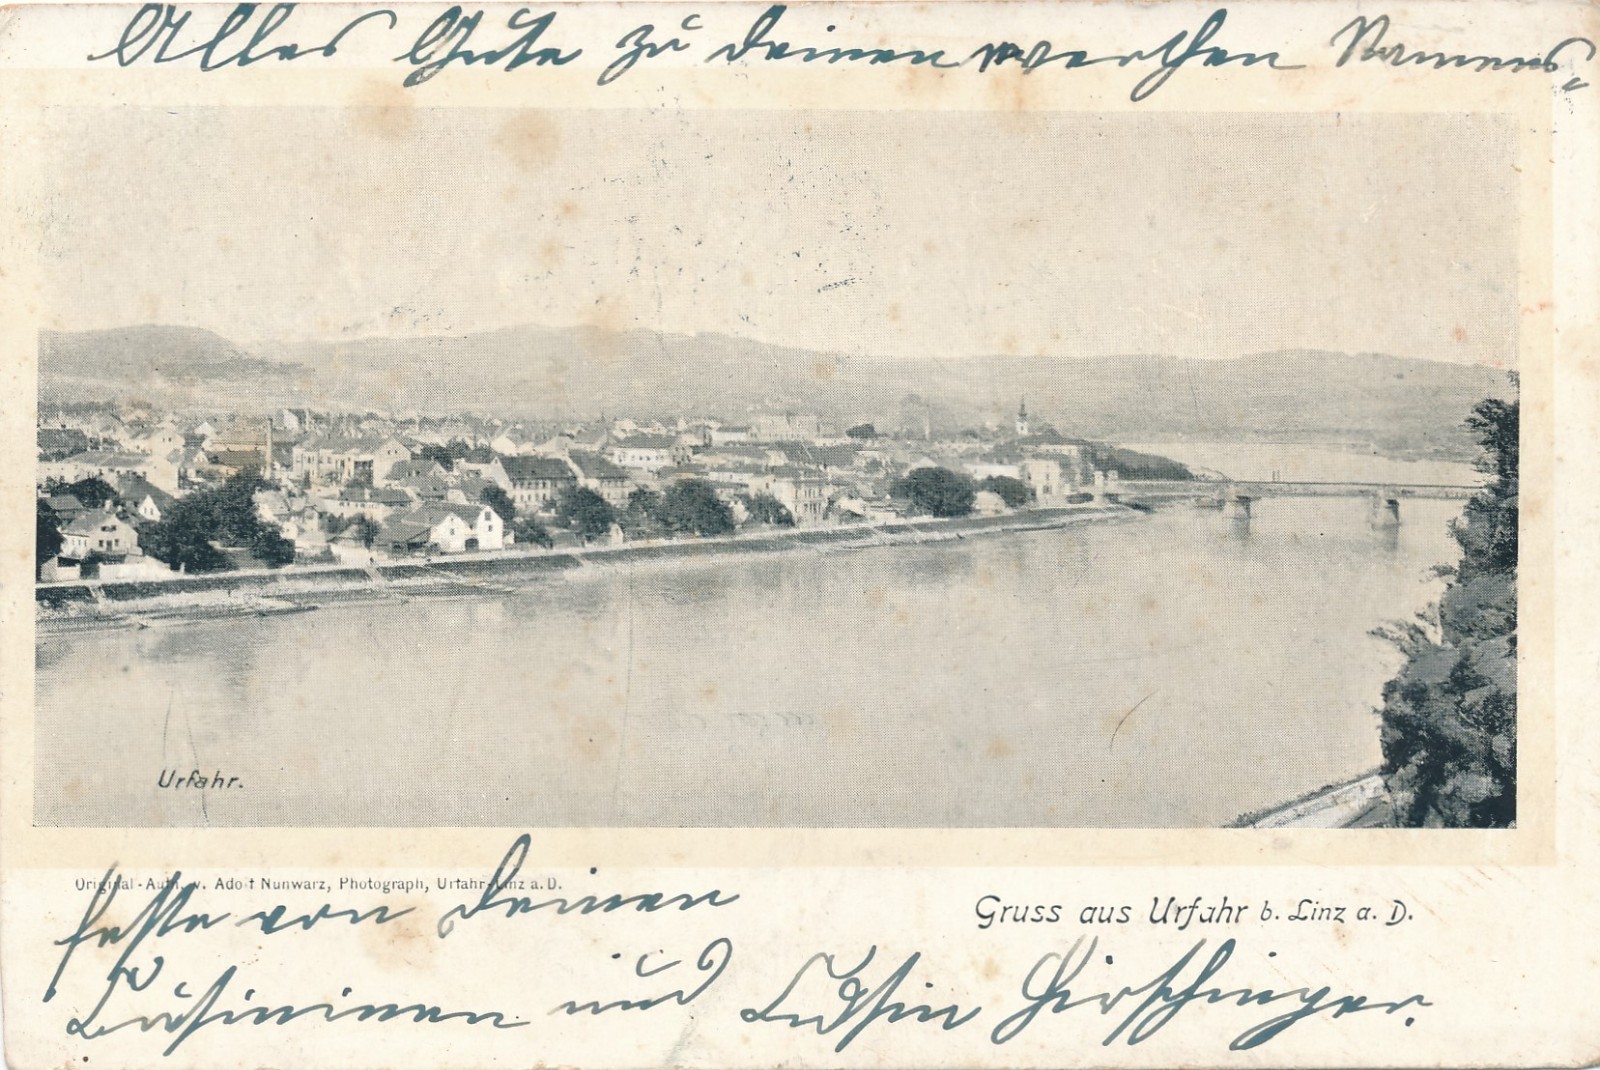 Alles Gute zu Deinen werthen Namens-
Urfahr.
Original-Aufn. v. Adolf Nunwarz, Photograph, Urfahr-Linz a. D.
Gruss aus Urfahr b. Linz a. D.
feste von Deinen
und Hirschinger.